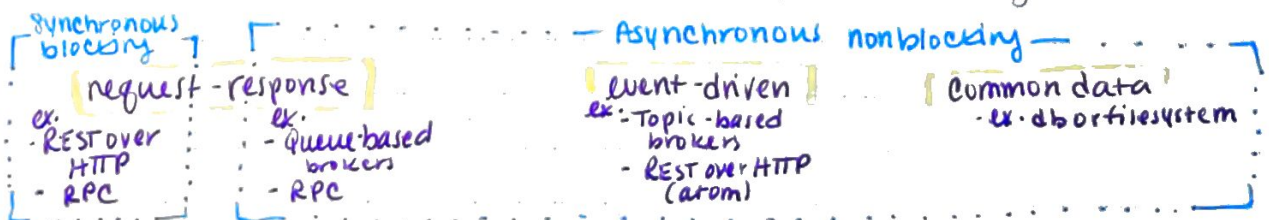 Synchronous
blocking
Asynchronous nonblocking
request-response
ex.
- REST over
HTTP
- RPC
ex.
- Queue-based
brokers
- RPC
event-driven
ex: - Topic-based
brokers
- REST over HTTP
(atom)
common data
- ex. db or filesystem